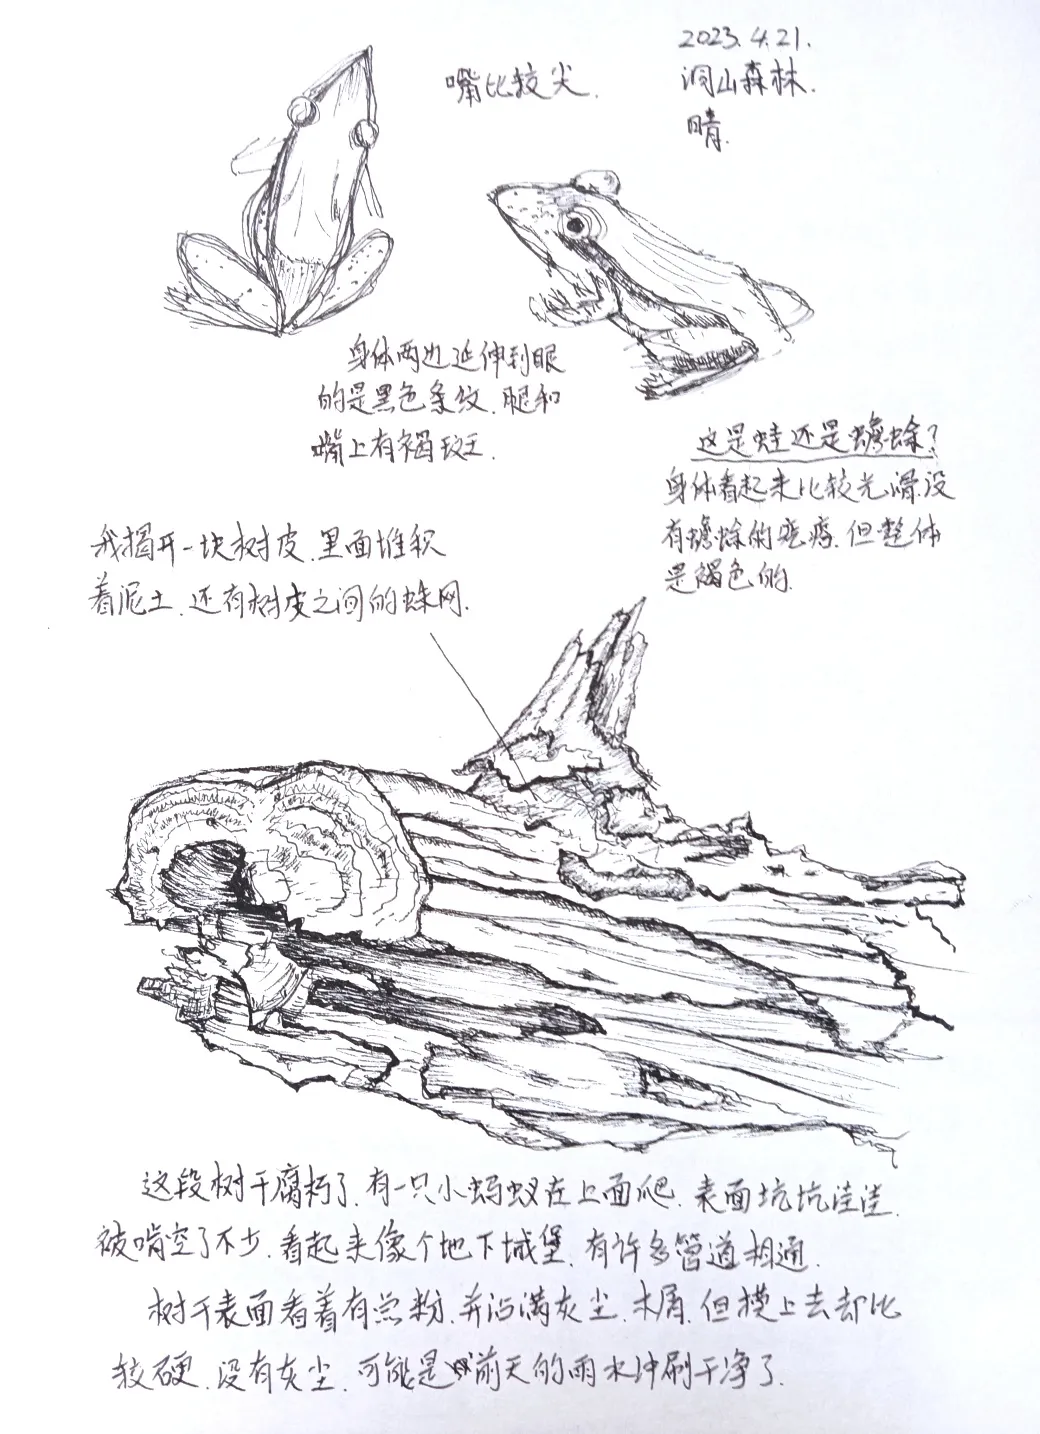 2023.4.21.
洞山森林.
晴.
嘴比较尖.
身体两边延伸到眼
的是黑色条纹.腿和
嘴上有褐斑.
这是蛙还是蟾蜍?
身体看起来比较光滑.没
有蟾蜍的疙瘩.但整体
是褐色的.
我揭开一块树皮.里面堆积
着泥土.还有树皮之间的蛛网.
这段树干腐朽了.有一只小蚂蚁在上面爬.表面坑坑洼洼.
被啃空了不少.看起来像个地下城堡.有许多管道相通.
树干表面看着有点粉.并沾满灰尘.木屑.但摸上去却比
较硬.没有灰尘.可能是前天的雨水冲刷干净了.